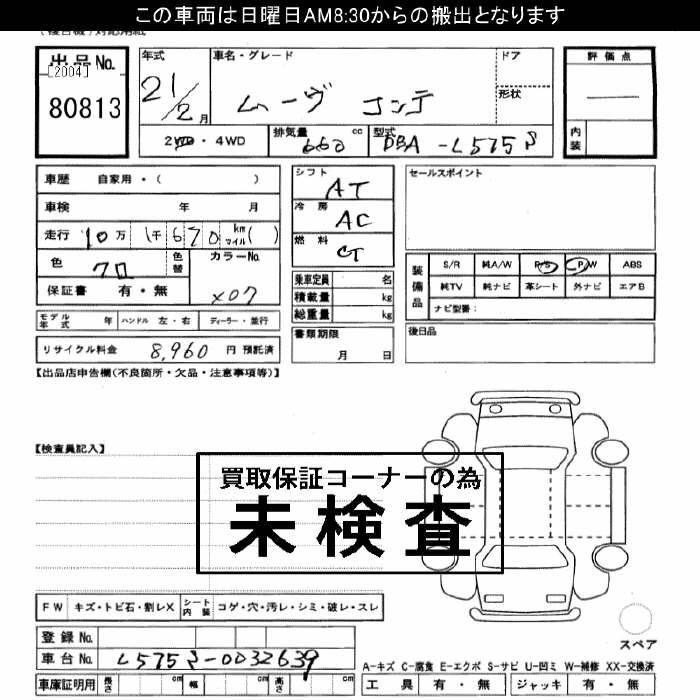 この車両は日曜日AM8:30からの搬出となります
出品No.
[2004]
80813
年式
21/2月
車名・グレード
ムーヴ コンテ
ドア
形状
評価点
内装
2WD・4WD
排気量 660 cc
型式 DBA-L575S
車歴 自家用・( )
車検 年 月
走行 10万 1千670 km マイル( )
色 クロ
色替
カラーNo. X07
保証書 有・無
シフト AT
冷房 AC
燃料
乗車定員 名
積載量 kg
総重量 kg
セールスポイント
装備品
S/R 純A/W P/S P/W ABS
純TV 純ナビ 革シート 外ナビ エアB
ナビ型番:
モデル年式 年 ハンドル 左・右 ディーラー・並行
リサイクル料金 8,960 円 預託済
書類期限 月 日
後日品
【出品店申告欄(不良箇所・欠品・注意事項等)】
【検査員記入】
買取保証コーナーの為
未検査
FW キズ・トビ石・割レX
シート内装 コゲ・穴・汚レ・シミ・破レ・スレ
スペア
登録No.
車台No. L575S-0032639
A-キズ C-腐食 E-エクボ S-サビ U-凹ミ W-補修 XX-交換済
車庫証明用 長さ cm 幅 cm 高さ cm
工具 有・無 ジャッキ 有・無